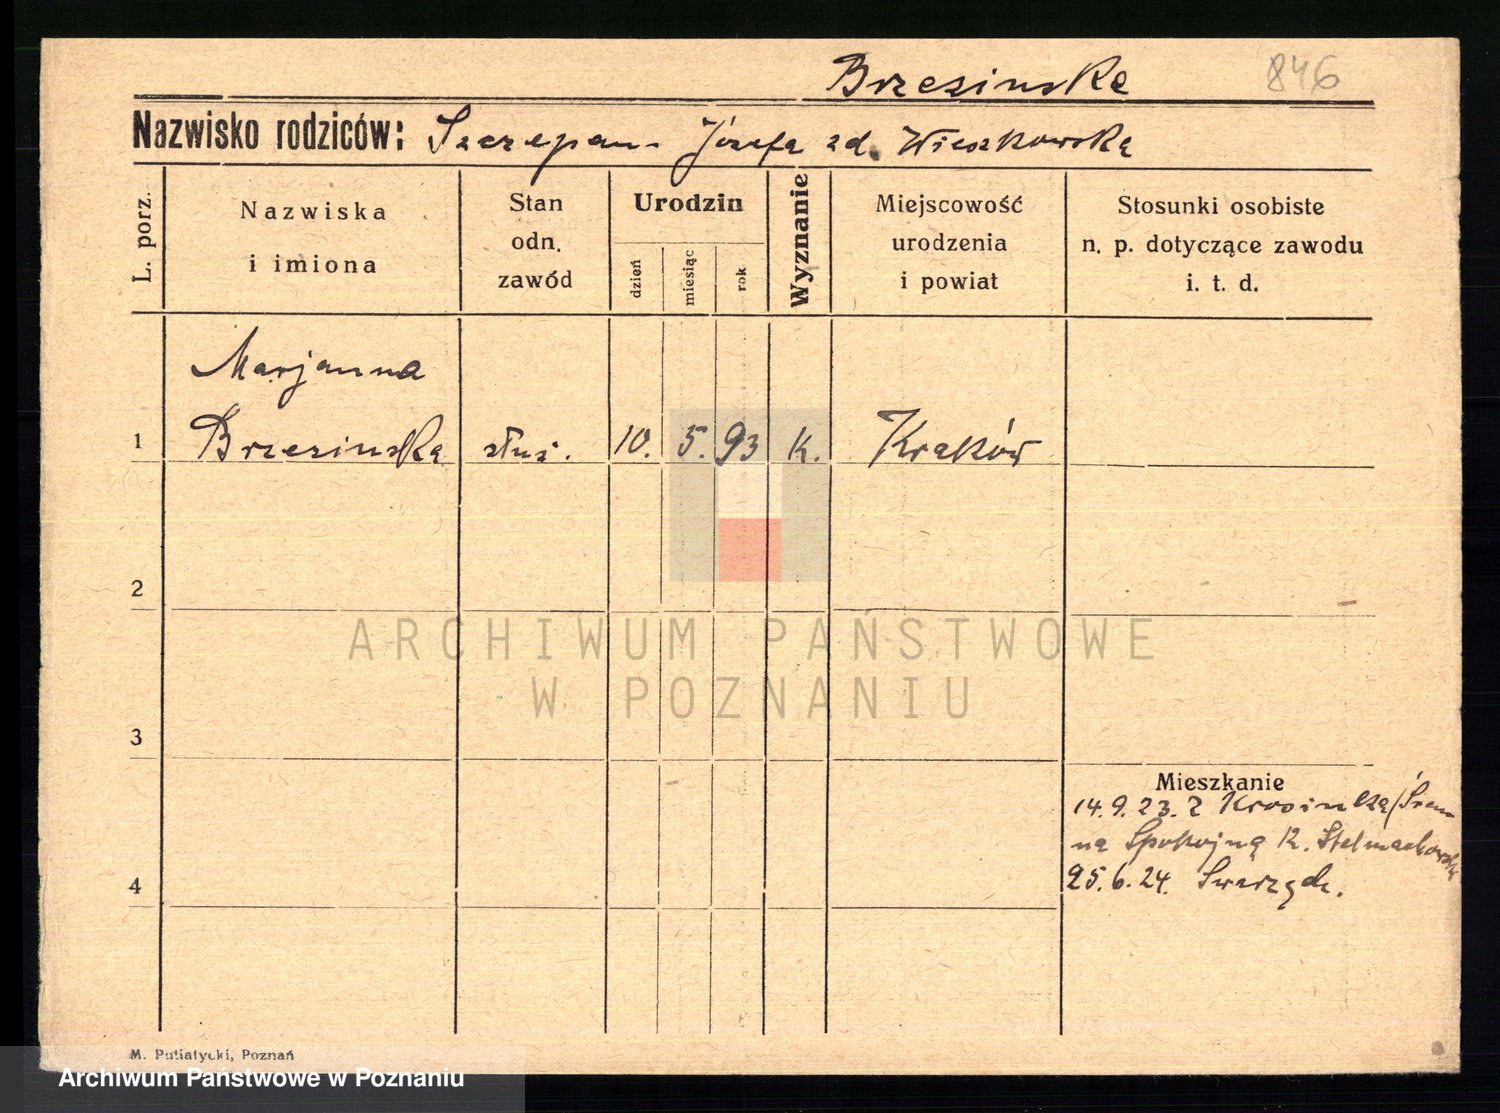 Brzesinska 846
Nazwisko rodziców: Szczepan - Józefa zd. Wieszkowska
L. porz.
Nazwiska
i imiona
Stan
odn.
zawód
Urodzin
dzień
miesiąc
rok
Wyznanie
Miejscowość
urodzenia
i powiat
Stosunki osobiste
n. p. dotyczące zawodu
i. t. d.
Marjanna
1 Brzesinska służ. 10. 5. 93 k. Kraków
2
ARCHIWUM PAŃSTWOWE
W POZNANIU
3
Mieszkanie
14.9.23. z Krosinka/Śrem
na Spokojną 12. Stelmachowska
4 25.6.24. Swarzędz.
M. Putiatycki, Poznań
Archiwum Państwowe w Poznaniu